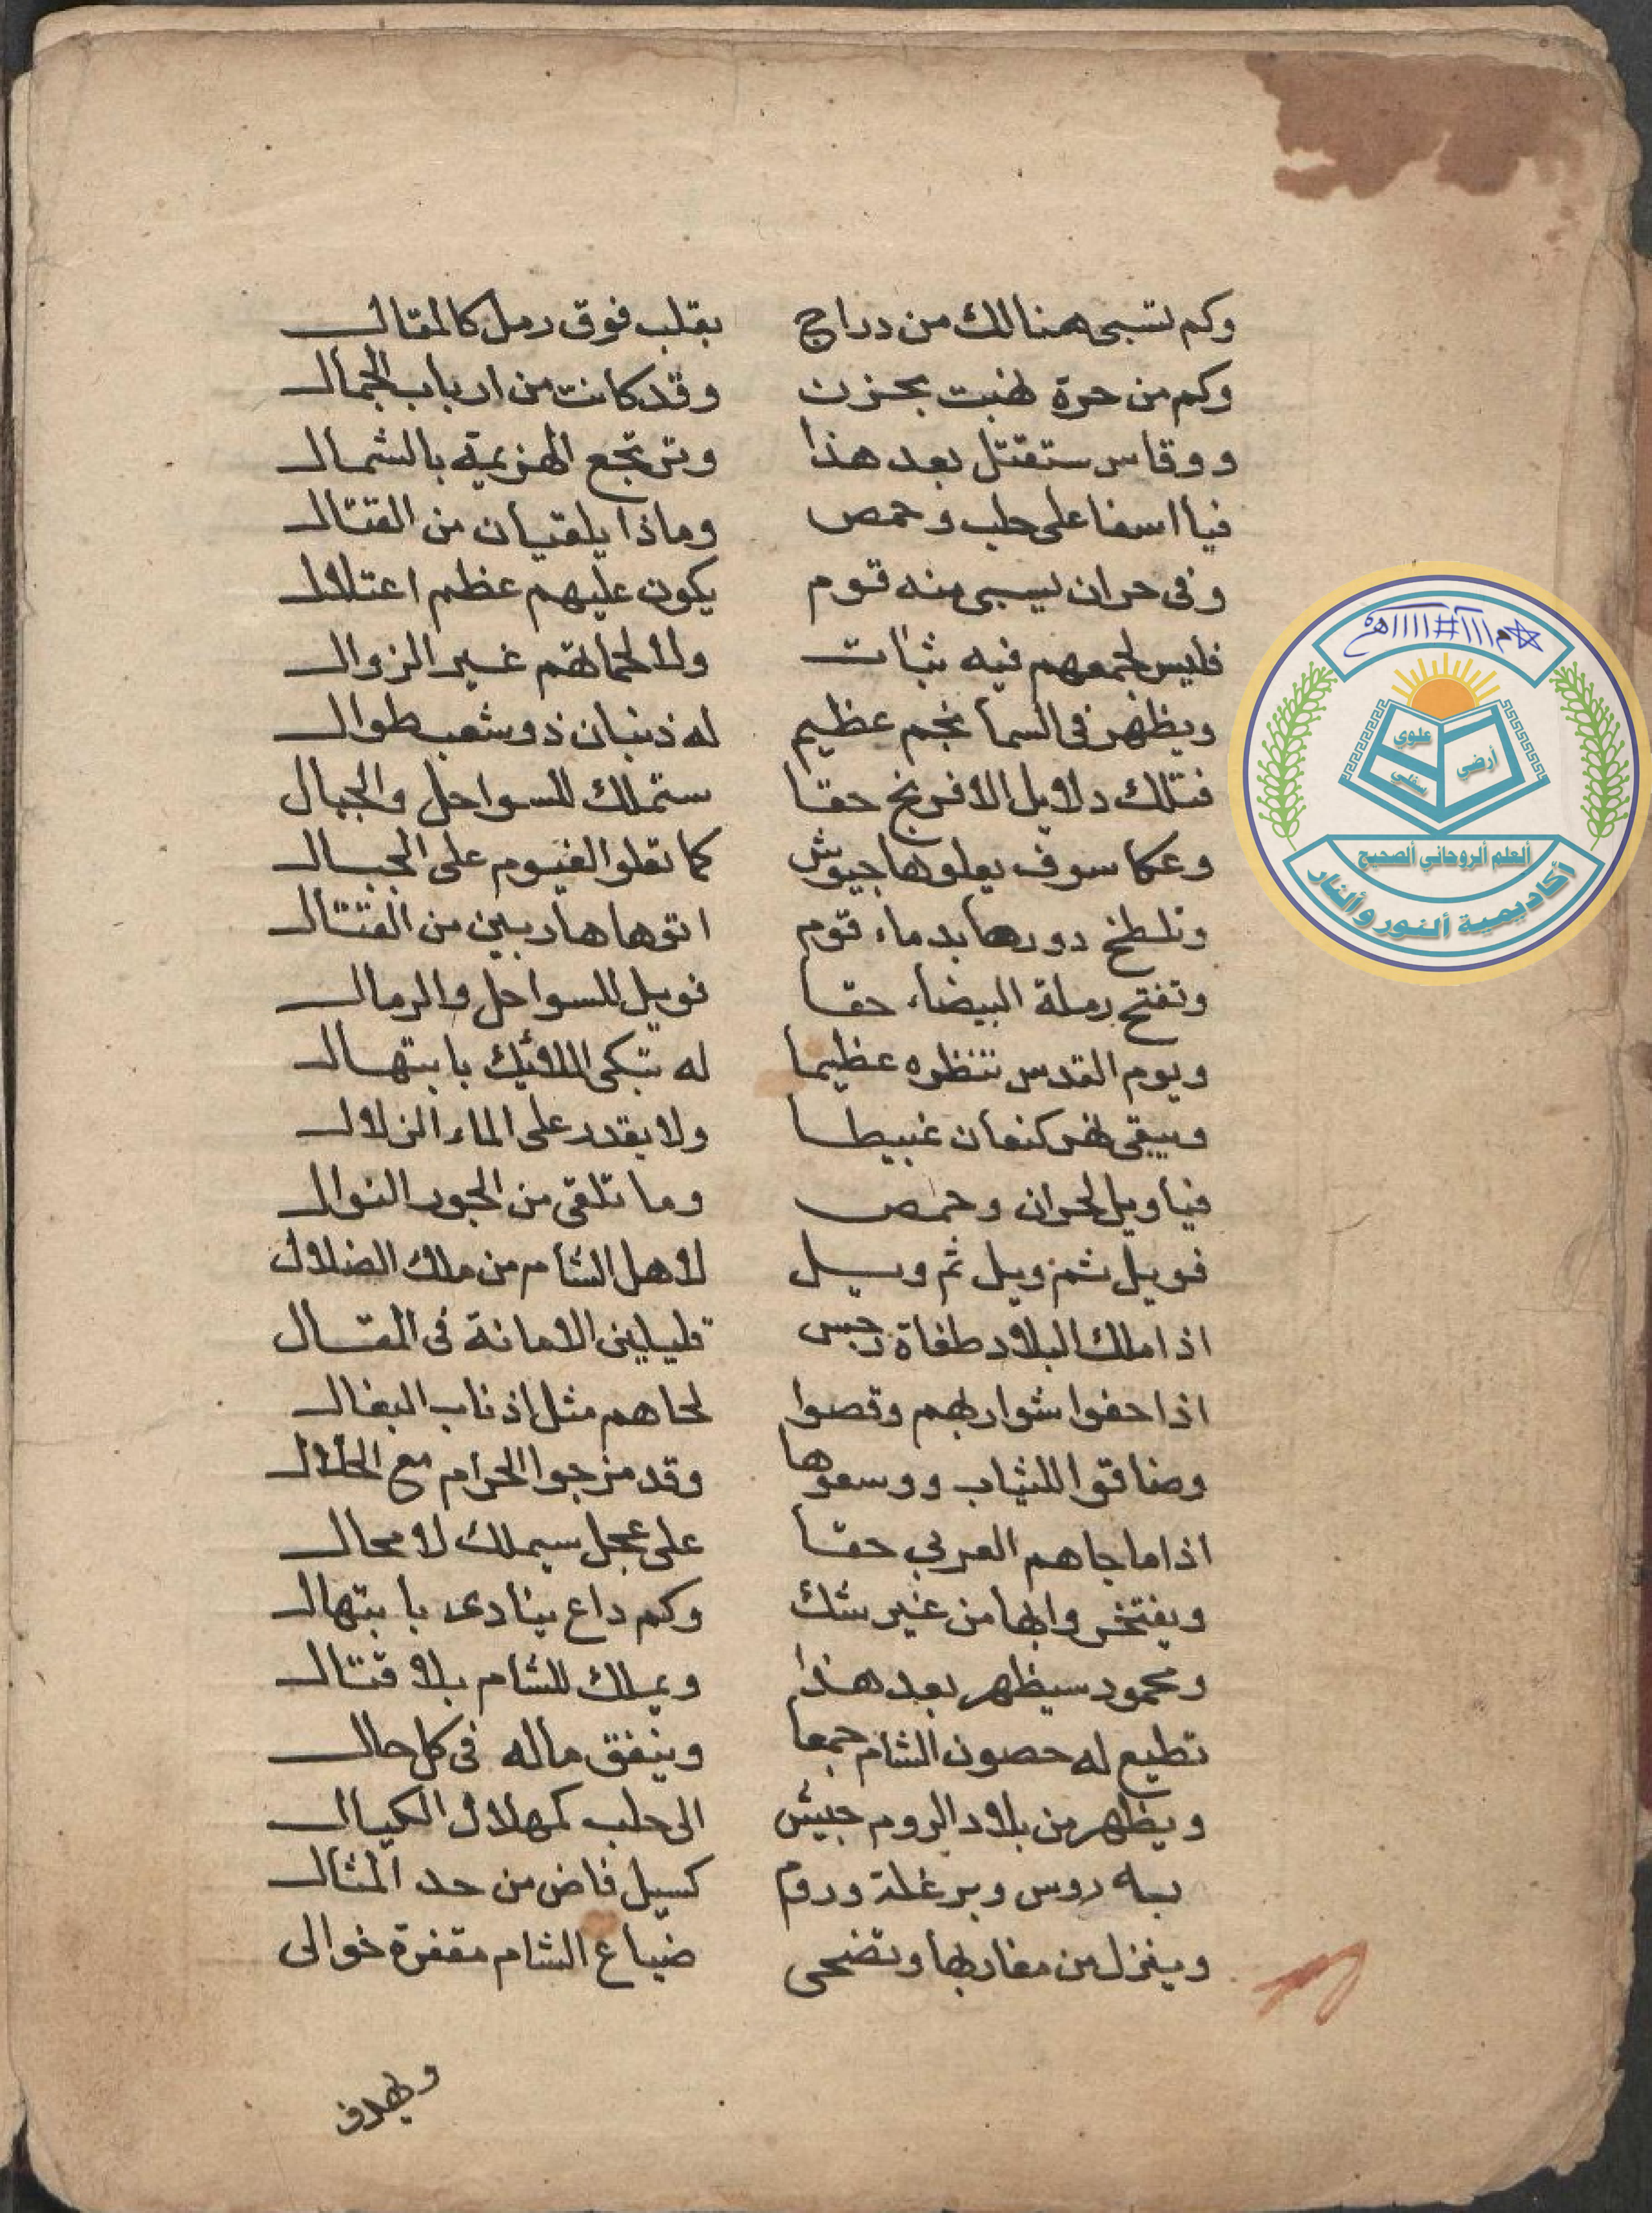 وكم تسبى هنالك من دراج بقلب فوق رمل كالمقال
وكم من حرة نهبت بحزن وقد كانت من ارباب الجمال
ووقاس ستقتل بعد هذا وترتجع الهزيمة بالشمال
فيا اسفا على حلب وحمص وماذا يلقيان من القتال
وفى حران يسبى منه قوم يكون عليهم عظم اعتلال
فليس لجمعهم فيه ثبات ولا لحماتهم غير الزوال
ويظهر فى السما نجم عظيم له ذنبان ذو شعب طوال
فتلك دلايل الافرنج حقا ستملك للسواحل والجبال
وعكا سوف يعلوها جيوش كما تعلوا الغيوم على الجبال
وتلطخ دورها بدماء قوم اتوها هاربين من القتال
وتفتح رملة البيضاء حقا فويل للسواحل والرمال
ويوم القدس تنظره عظيما له تبكى الملائيك بابتهال
ويبقى نهر كنعان غبيطا ولا يقدر على الماء الزلال
فيا ويل لحران وحمص وما تلقى من الجور النوال
فويل ثم ويل ثم ويل لاهل الشام من ملك الضلال
اذا ملك البلاد طغاة رجس قليلين الامانة فى المقال
اذا حفوا شواربهم وقصوا لحاهم مثل اذناب البغال
وضاقوا للثياب ووسعوها وقد مزجوا الحرام مع الحلال
اذا ما جاهم العربي حقا على عجل سيملك لا محال
ويفتخر وابها من غير شك وكم داع ينادى بابتهال
ومحمود سيظهر بعد هذا ويملك للشام بلا قتال
تطيع له حصون الشام جمعا وينفق ماله فى كل حال
ويظهر من بلاد الروم جيش الى حلب كمهلال الكيال
به روس وبرغلة وروم كسيل فاض من حد المثال
وينزل من مغاربها وتضحى ضياع الشام مقفرة خوالى
علوي
أرضي
سفلي
العلم الروحاني الصحيح
أكاديمية النور والنار